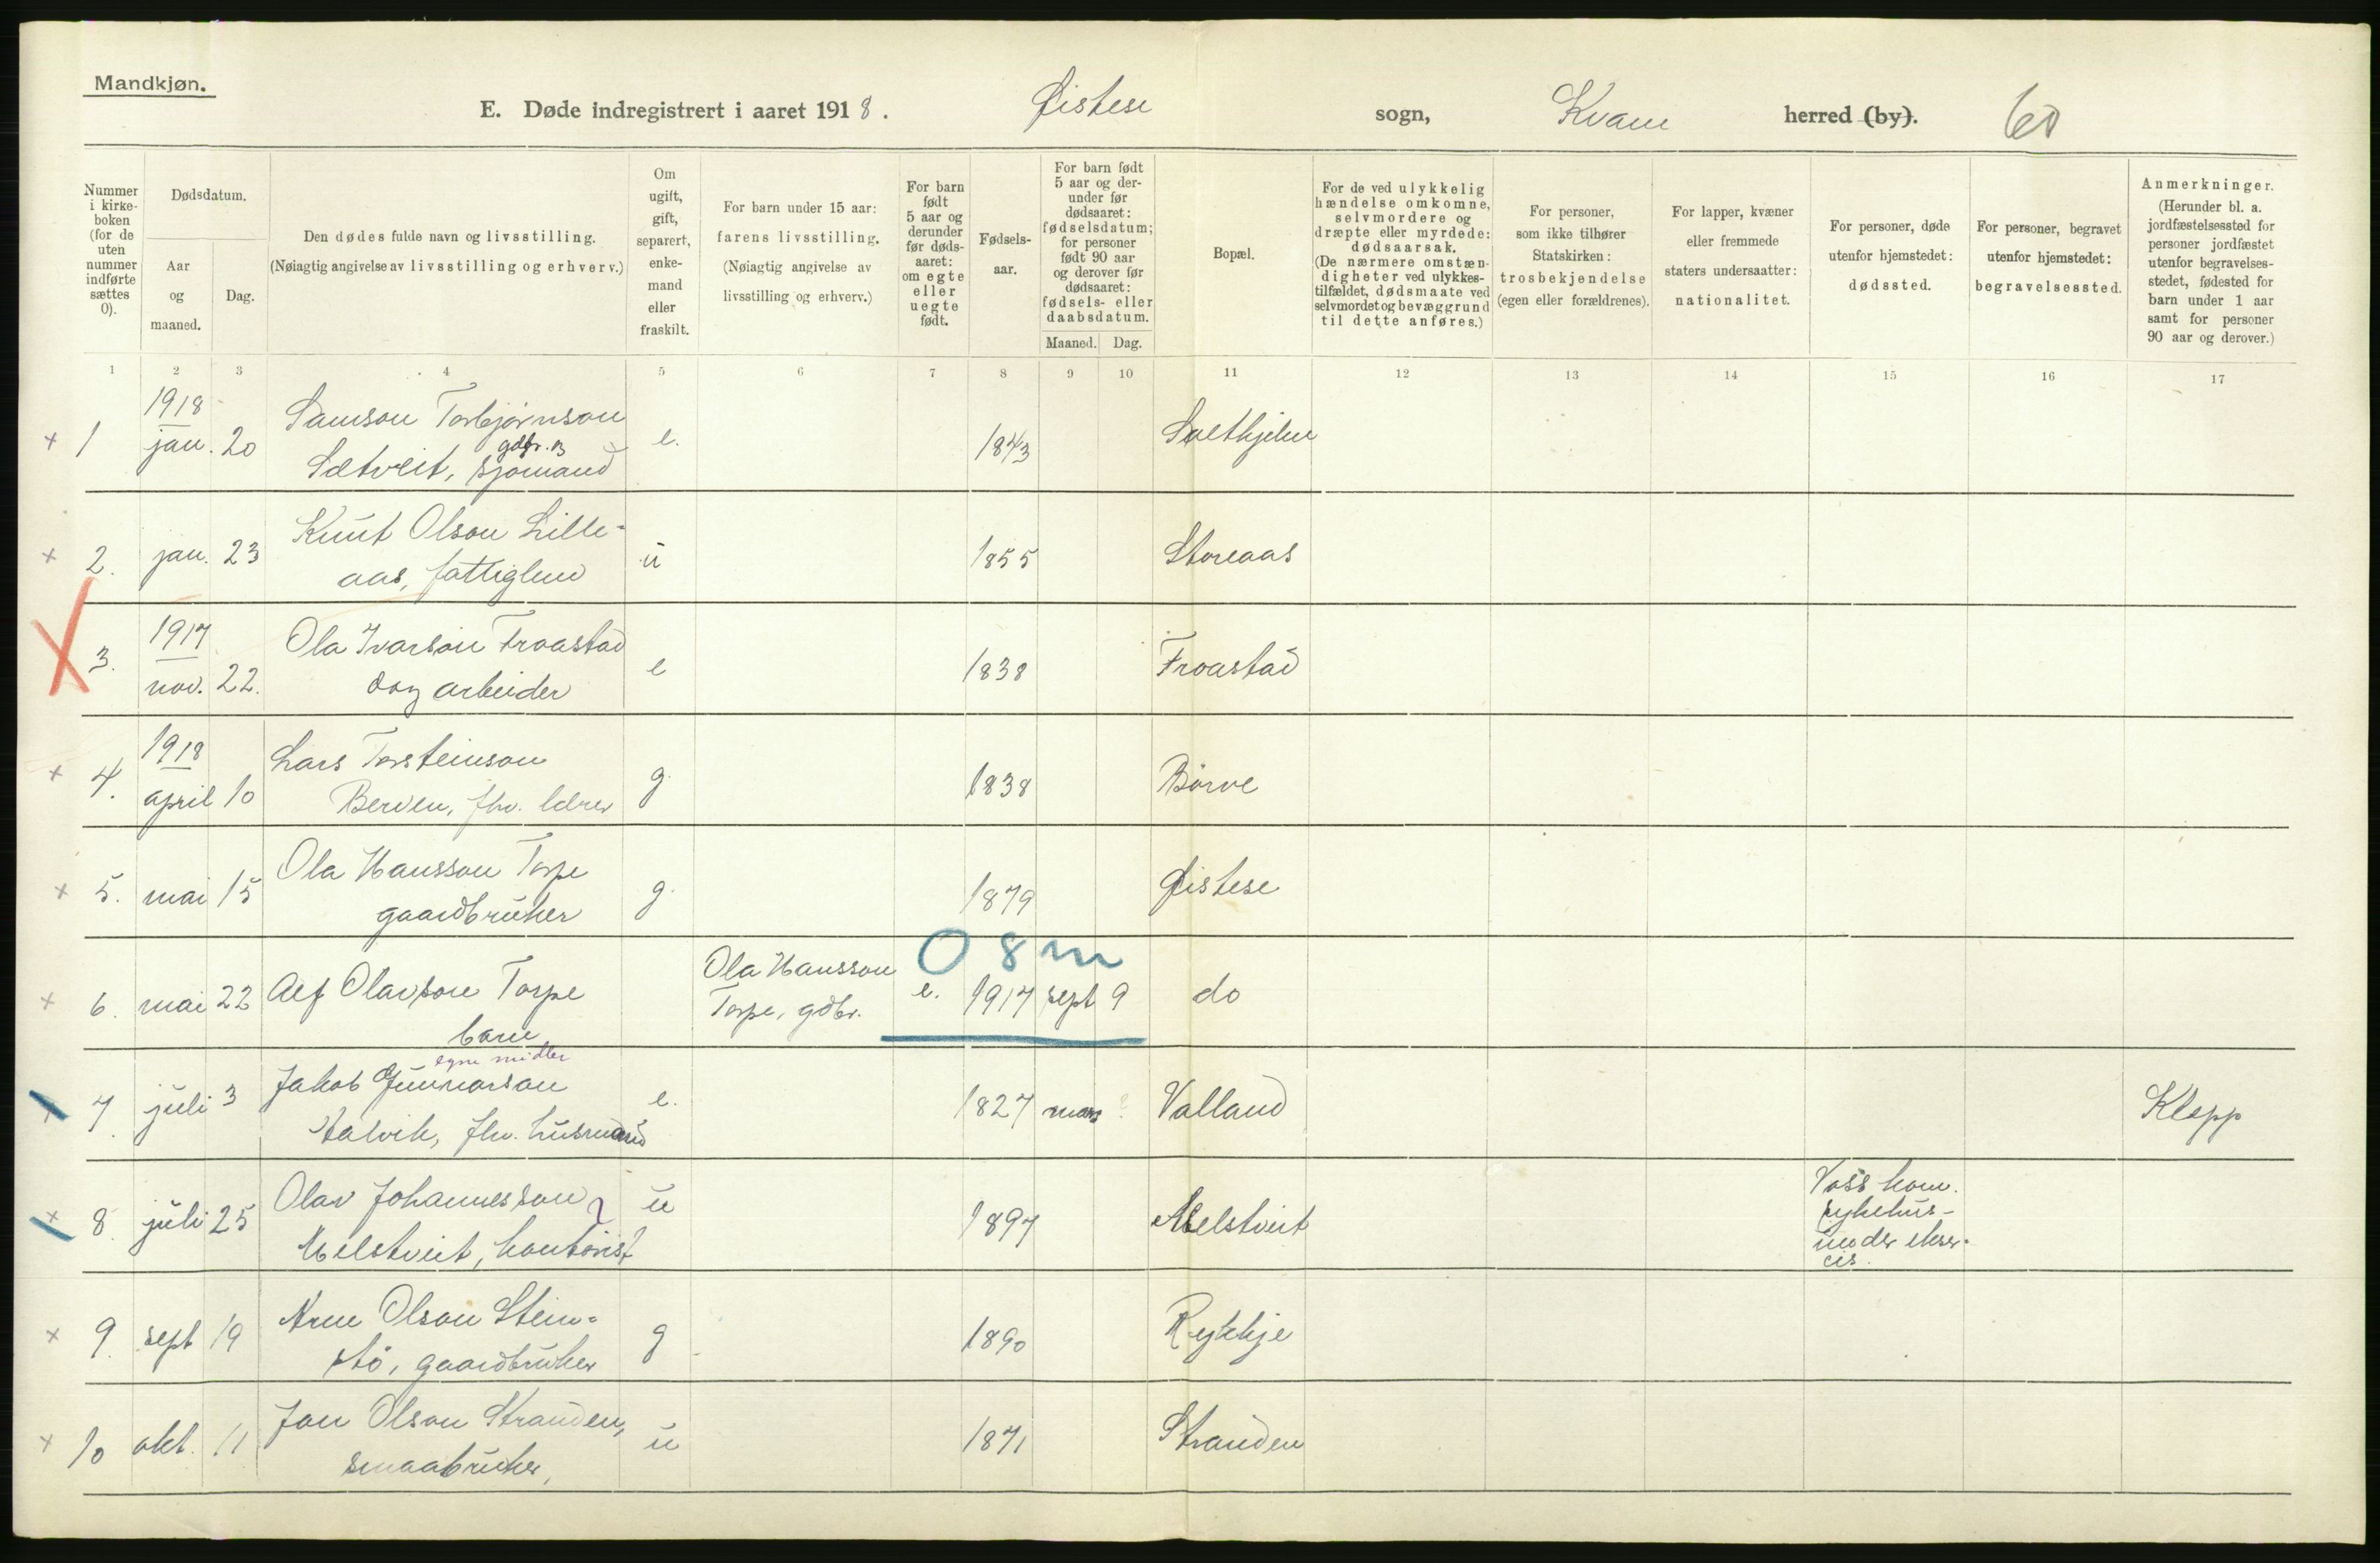 Mandkjøn.
E. Døde indregistrert i aaret 1918. Øistese sogn, Kvam herred (by). 60
Nummer i kirkeboken (for de uten nummer indførte sættes 0).
Dødsdatum.
Aar og maaned.
Dag.
Den dødes fulde navn og livsstilling.
(Nøiagtig angivelse av livsstilling og erhverv.)
Om ugift, gift, separert, enkemand eller fraskilt.
For barn under 15 aar: farens livsstilling.
(Nøiagtig angivelse av livsstilling og erhverv.)
For barn født 5 aar og derunder før dødsaaret: om egte eller uegte født.
Fødselsaar.
For barn født 5 aar og derunder før dødsaaret: fødselsdatum; for personer født 90 aar og derover før dødsaaret: fødsels- eller daabsdatum.
Maaned. Dag.
Bopæl.
For de ved ulykkelig hændelse omkomne, selvmordere og dræpte eller myrdede: dødsaarsak.
(De nærmere omstændigheter ved ulykkestilfældet, dødsmaate ved selvmordet og bevæggrund til dette anføres.)
For personer, som ikke tilhører Statskirken: trosbekjendelse (egen eller forældrenes).
For lapper, kvæner eller fremmede staters undersaatter: nationalitet.
For personer, døde utenfor hjemstedet: dødssted.
For personer, begravet utenfor hjemstedet: begravelsessted.
Anmerkninger.
(Herunder bl. a. jordfæstelsessted for personer jordfæstet utenfor begravelsesstedet, fødested for barn under 1 aar samt for personer 90 aar og derover.)
1 2 3 4 5 6 7 8 9 10 11 12 13 14 15 16 17
1918
× 1 jan. 20 Samson Torbjørnson e. 1843
gdbr. og
Sætveit, sjømand
× 2. jan. 23 Knut Olson Lille- u 1855 Storeaas
aas, fattiglem
1917
3. nov. 22. Ola Ivarson Froastad e 1838 Froastad
dagarbeider
1918
× 4. april 10 Lars Torsteinson g. 1838 Børve
Berven, fhv. lærer
× 5. mai 15 Ola Hansson Torpe g. 1879 Øistese
gaardbruker
0 8 m
× 6. mai 22 Alf Olavson Torpe Ola Hansson e. 1917 sept 9 do
barn Torpe, gdbr.
egne midler
× 7. juli 3 Jakob Gunnarson e. 1827 mars ? Valland Klepp
fhv. husmand
× 8. juli 25 Olav Johannesson u 1897 Melstveit Voss kom.
Melstveit, kontorist sykehus-
under ekser-
cis.
× 9. sept 19 Arne Olson Stein- g 1890 Rykkje
stø, gaardbruker
× 10 okt. 11 Jon Olson Stranden, u 1871 Stranden
smaabruker,